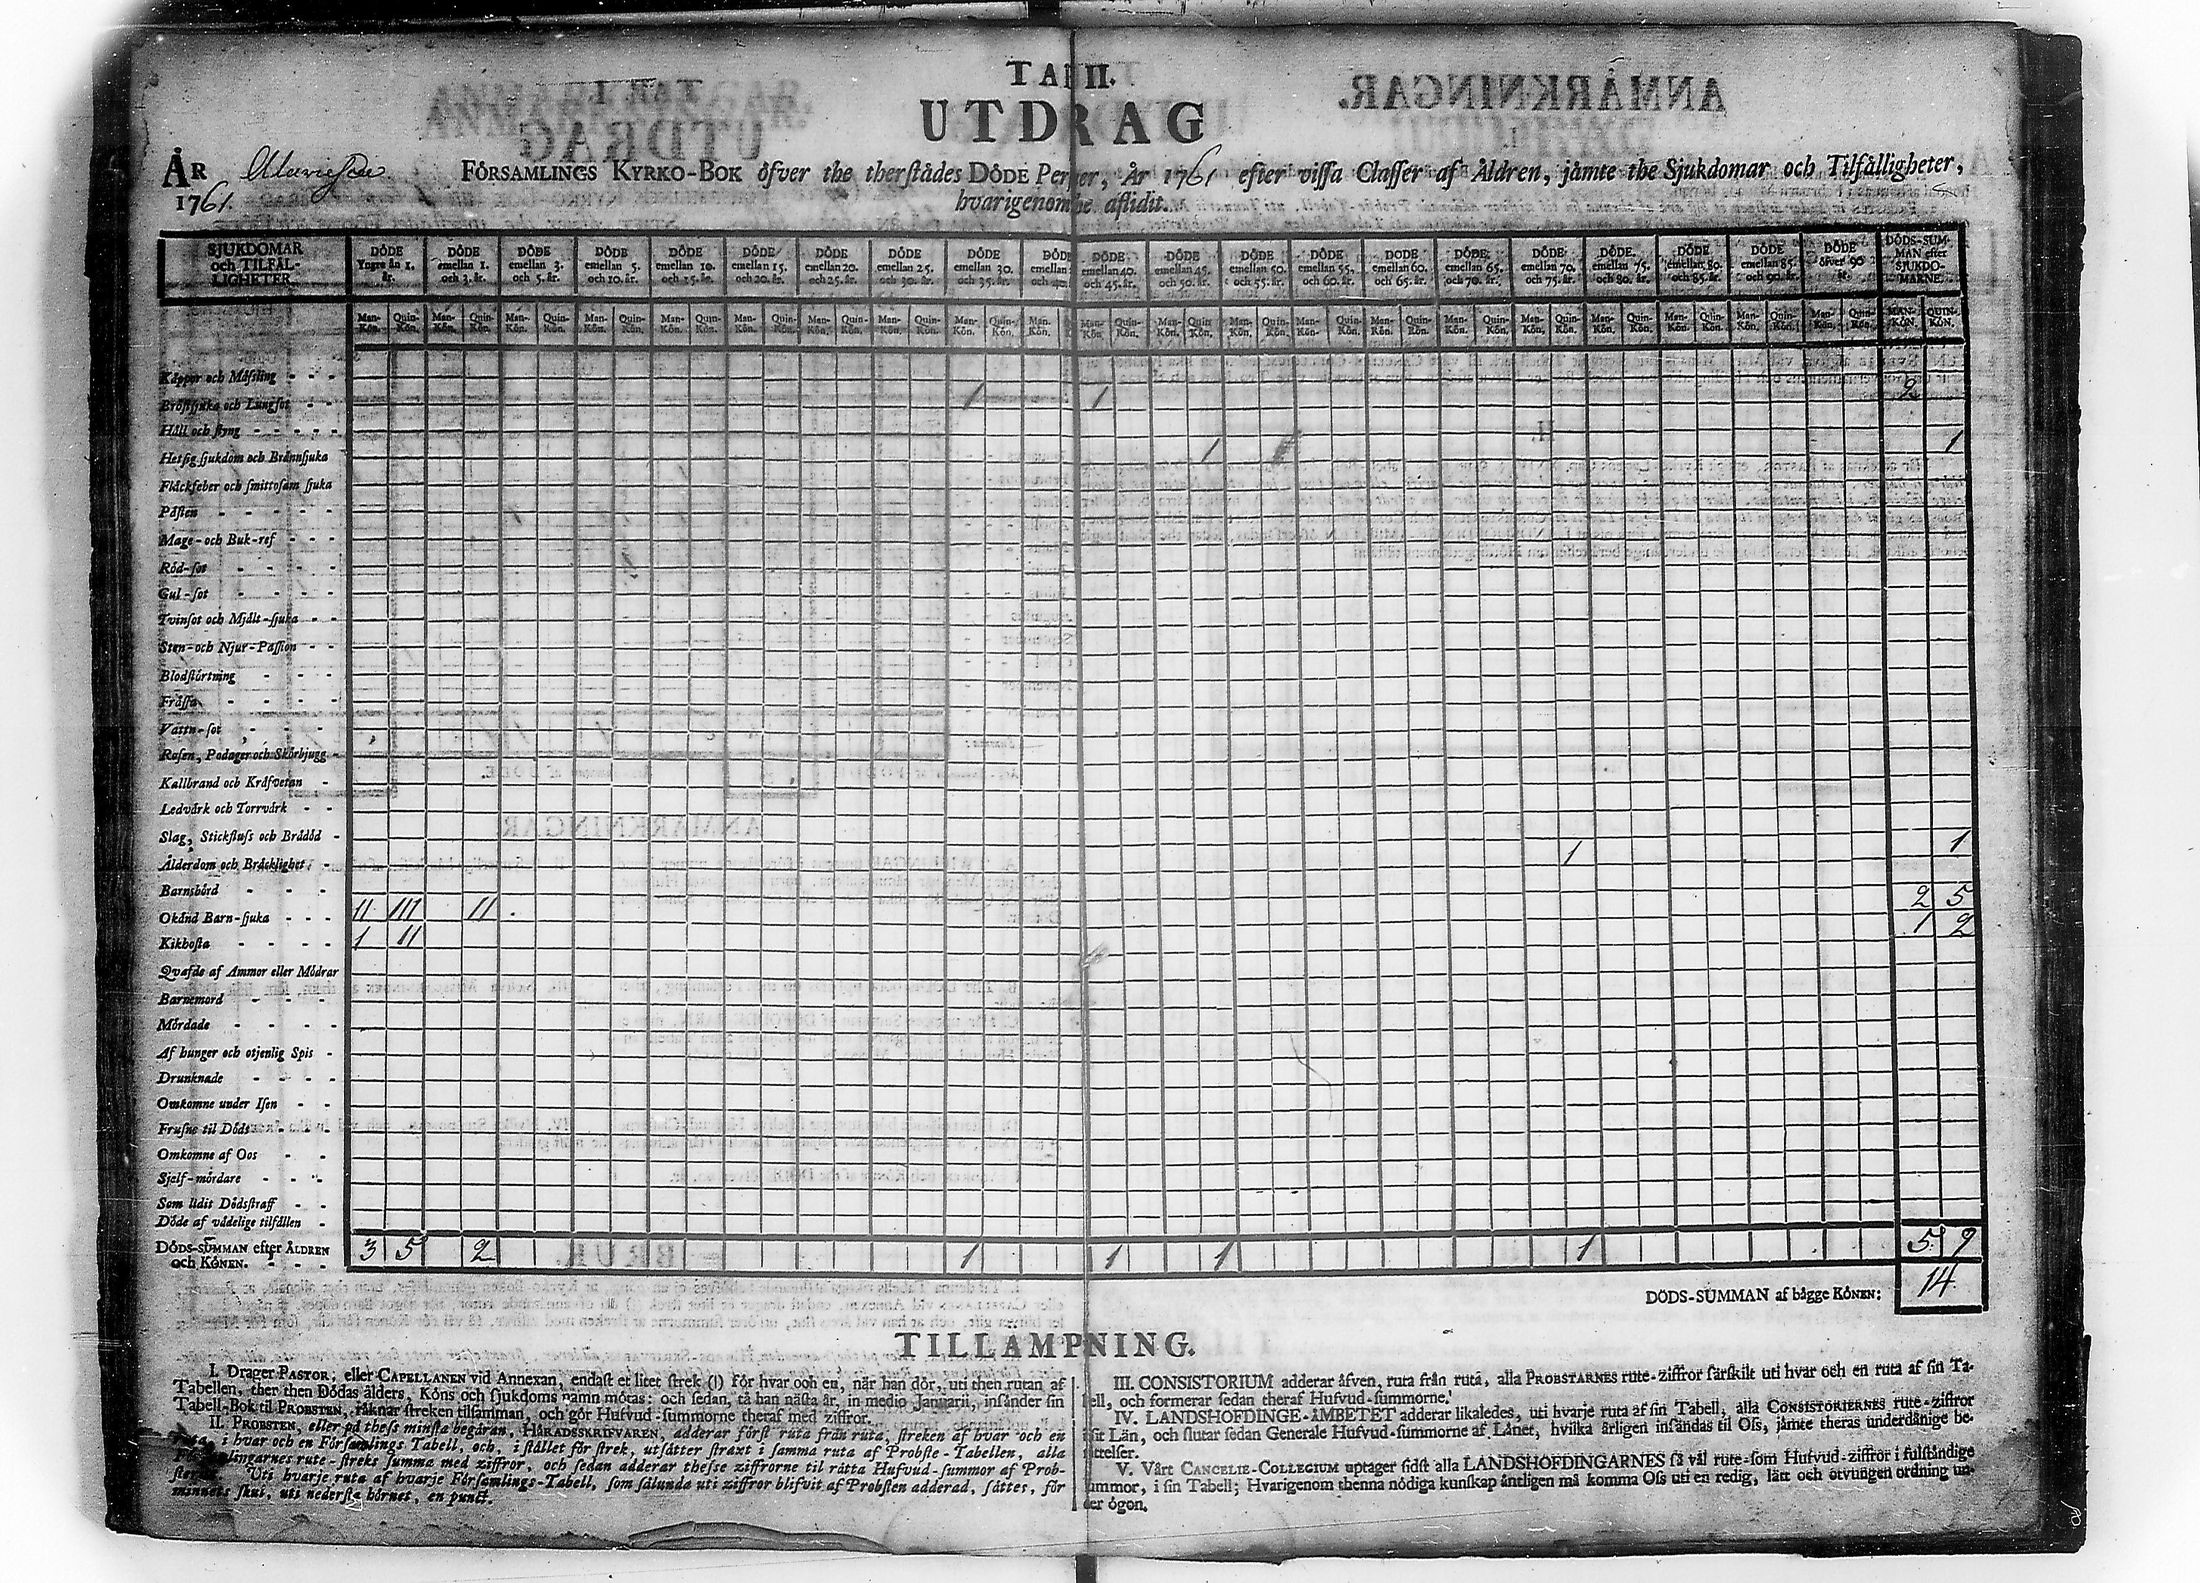 TAB II.
UTDRAG
ÅR 1761.
FÖRSAMLINGS KYRKO-BOK öfver the therstådes DÖDE Personer, År 1761 efter vissa Classer af Åldren, jämte the Sjukdomar och Tilfälligheter,
hvarigenom the aflidit.
SJUKDOMAR och TILFÄL-LIGHETER.
DÖDE Yngre än 1. år.
DÖDE emellan 1. och 3. år.
DÖDE emellan 3. och 5. år.
DÖDE emellan 5. och 10. år.
DÖDE emellan 10. och 15. år.
DÖDE emellan 15. och 20. år.
DÖDE emellan 20. och 25. år.
DÖDE emellan 25. och 30. år.
DÖDE emellan 30. och 35. år.
DÖDE emellan 40. och 45. år.
DÖDE emellan 45. och 50. år.
DÖDE emellan 50. och 55. år.
DÖDE emellan 55. och 60. år.
DÖDE emellan 60. och 65. år.
DÖDE emellan 65. och 70. år.
DÖDE emellan 70. och 75. år.
DÖDE emellan 75. och 80. år.
DÖDE emellan 80. och 85. år.
DÖDE emellan 85. och 90. år.
DÖDE öfver 90 år.
DÖDS-SUMMAN efter SJUKDOMARNE.
Man-Kön. Quin-Kön.
Kåppor och Måssling
Bröstsjuka och Lungsot 1 1 2
Håll och styng
Hetsig sjukdom och Brännsjuka 1 1
Fläckfeber och smittosam sjuka
Påsten
Mage- och Buk-ref
Röd-sot
Gul-sot
Tvinsot och Mjält-sjuka
Sten- och Njur-Passion
Blodstörtning
Fråssa
Vattn-sot
Rosen, Podager och Skörbjugg
Kallbrand och Kräfvetan
Ledvärk och Torrvärk
Slag, Stickfluss och Brådöd
Ålderdom och Bräcklighet 1 1
Barnsbörd
Okänd Barn-sjuka II III II 2 5
Kikhosta I II 1 2
Qvafde af Ammor eller Mödrar
Barnemord
Mördade
Af hunger och otjenlig Spis
Drunknade
Omkomne under Isen
Frusne til Döds
Omkomne af Oos
Sjelf-mördare
Som lidit Dödsstraff
Döde af vådelige tilfällen
DÖDS-SUMMAN efter ÅLDREN och KÖNEN. 3 5 2 1 1 1 1 5 9
DÖDS-SUMMAN af bägge KÖNEN: 14
TILLÄMPNING.
I. Drager PASTOR, eller CAPELLANEN vid Annexan, endast et litet strek (|) för hvar och en, när han dör, uti then rutan af
Tabellen, ther then Dödas ålders, Köns och sjukdoms namn mötas: och sedan, tå han nästa år, in medio Januarii, insänder sin
Tabell-Bok til PROBSTEN, räknar streken tilsamman, och gör Hufvud-summorne theraf med ziffror.
II. PROBSTEN, eller på thess minsta begäran, HÄRADSSKRIFVAREN, adderar först ruta från ruta, streken af hvar och en
ruta, i hvar och en Församlings Tabell, och, i stället för strek, utsätter straxt i samma ruta af Probste-Tabellen, alla
Församlingarnes rute-streks summa med ziffror, och sedan adderar thesse ziffrorne til rätta Hufvud-summor af Prob-
steriet. Uti hvarje ruta af hvarje Församlings-Tabell, som sålunda uti ziffror blifvit af Probsten adderad, sättes, för
minnets skul, uti nedersta hörnet, en punct.
III. CONSISTORIUM adderar äfven, ruta från ruta, alla PROBSTARNES rute-ziffror särskilt uti hvar och en ruta af sin Ta-
bell, och formerar sedan theraf Hufvud-summorne.
IV. LANDSHÖFDINGE-ÄMBETET adderar likaledes, uti hvarje ruta af sin Tabell, alla CONSISTORIERNES rute-ziffror
i sit Län, och slutar sedan Generale Hufvud-summorne af Länet, hvilka årligen insändas til Oss, jämte theras underdånige be-
rättelser.
V. Vårt CANCELIE-COLLEGIUM uptager sidst alla LANDSHÖFDINGARNES så väl rute- som Hufvud-ziffror i fulständige
summor, i sin Tabell; Hvarigenom thenna nödiga kunskap äntligen må komma Oss uti en redig, lätt och otvungen ordning un-
der ögon.